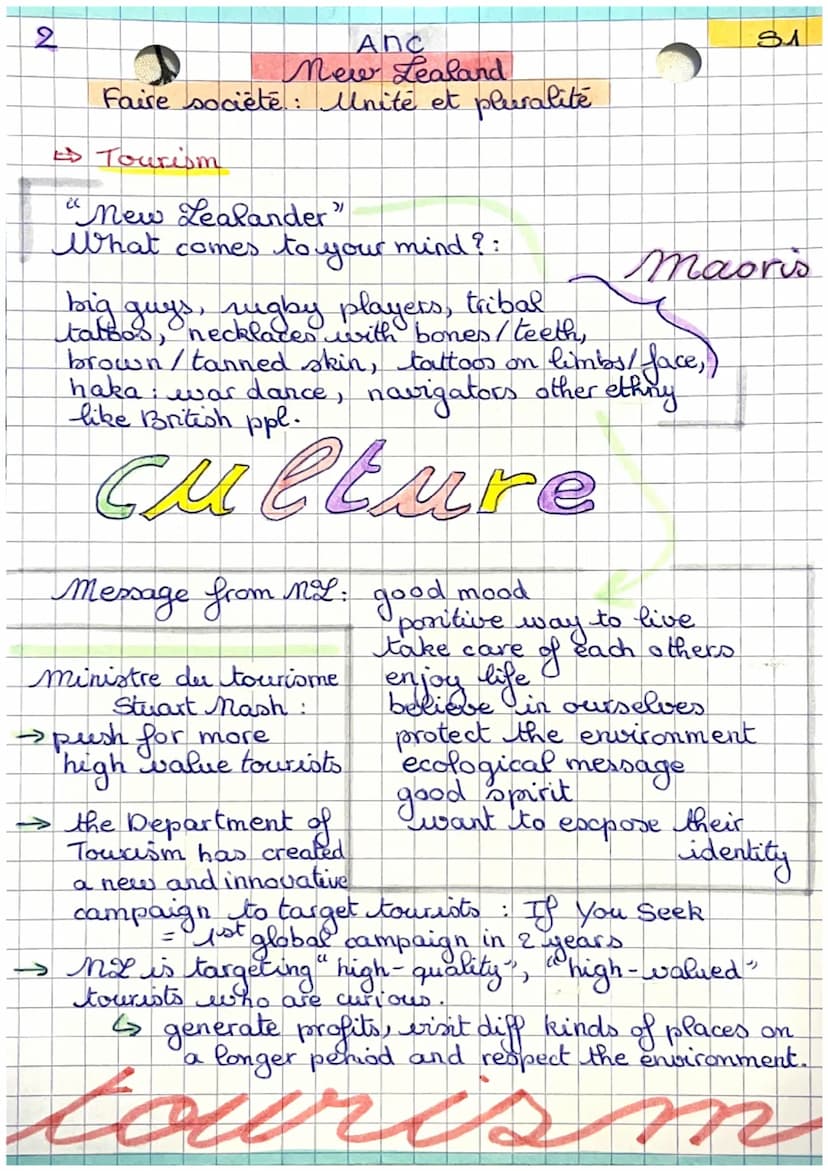 2
ANC
S1
New Zealand
Faire société : Unité et pluralité
⇨ Tourism
"New Zealander"
What comes to your mind ? :
Maoris
big guys, rugby players, tribal
tattoos, necklaces with bones/teeth,
brown/tanned skin, tattoos on limbs/face,
haka : war dance, navigators other ethny
like British ppl.
culture
Message from NZ : good mood
positive way to live
take care of each others
enjoy life
believe in ourselves
protect the environment
ecological message
good spirit
want to escpose their
identity
Ministre du tourisme
Stuart Nash :
→ push for more
high value tourists
→ the Department of
Tourism has created
a new and innovative
campaign to target tourists : If You Seek
= 1st global campaign in 2 years
→ NZ is targeting "high-quality", "high-valued"
tourists who are curious.
↳ generate profits, visit diff kinds of places on
a longer period and respect the environment.
tourism